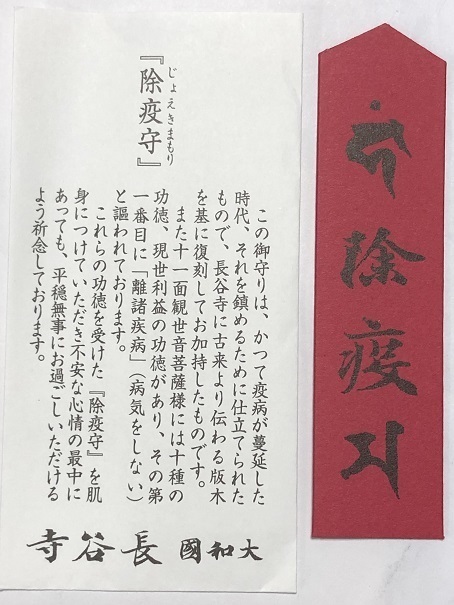 『除疫守』
じょえきまもり
この御守りは、かつて疫病が蔓延した
時代、それを鎮めるために仕立てられた
もので、長谷寺に古来より伝わる版木
を基に復刻してお加持したものです。
また十一面観世音菩薩様には十種の
功徳、現世利益の功徳があり、その第
一番目に「離諸疾病」（病気をしない）
と謳われております。
これらの功徳を受けた『除疫守』を肌
身につけていただき不安な心情の最中に
あっても、平穏無事にお過ごしいただける
よう祈念しております。
大和國 長谷寺
除疫